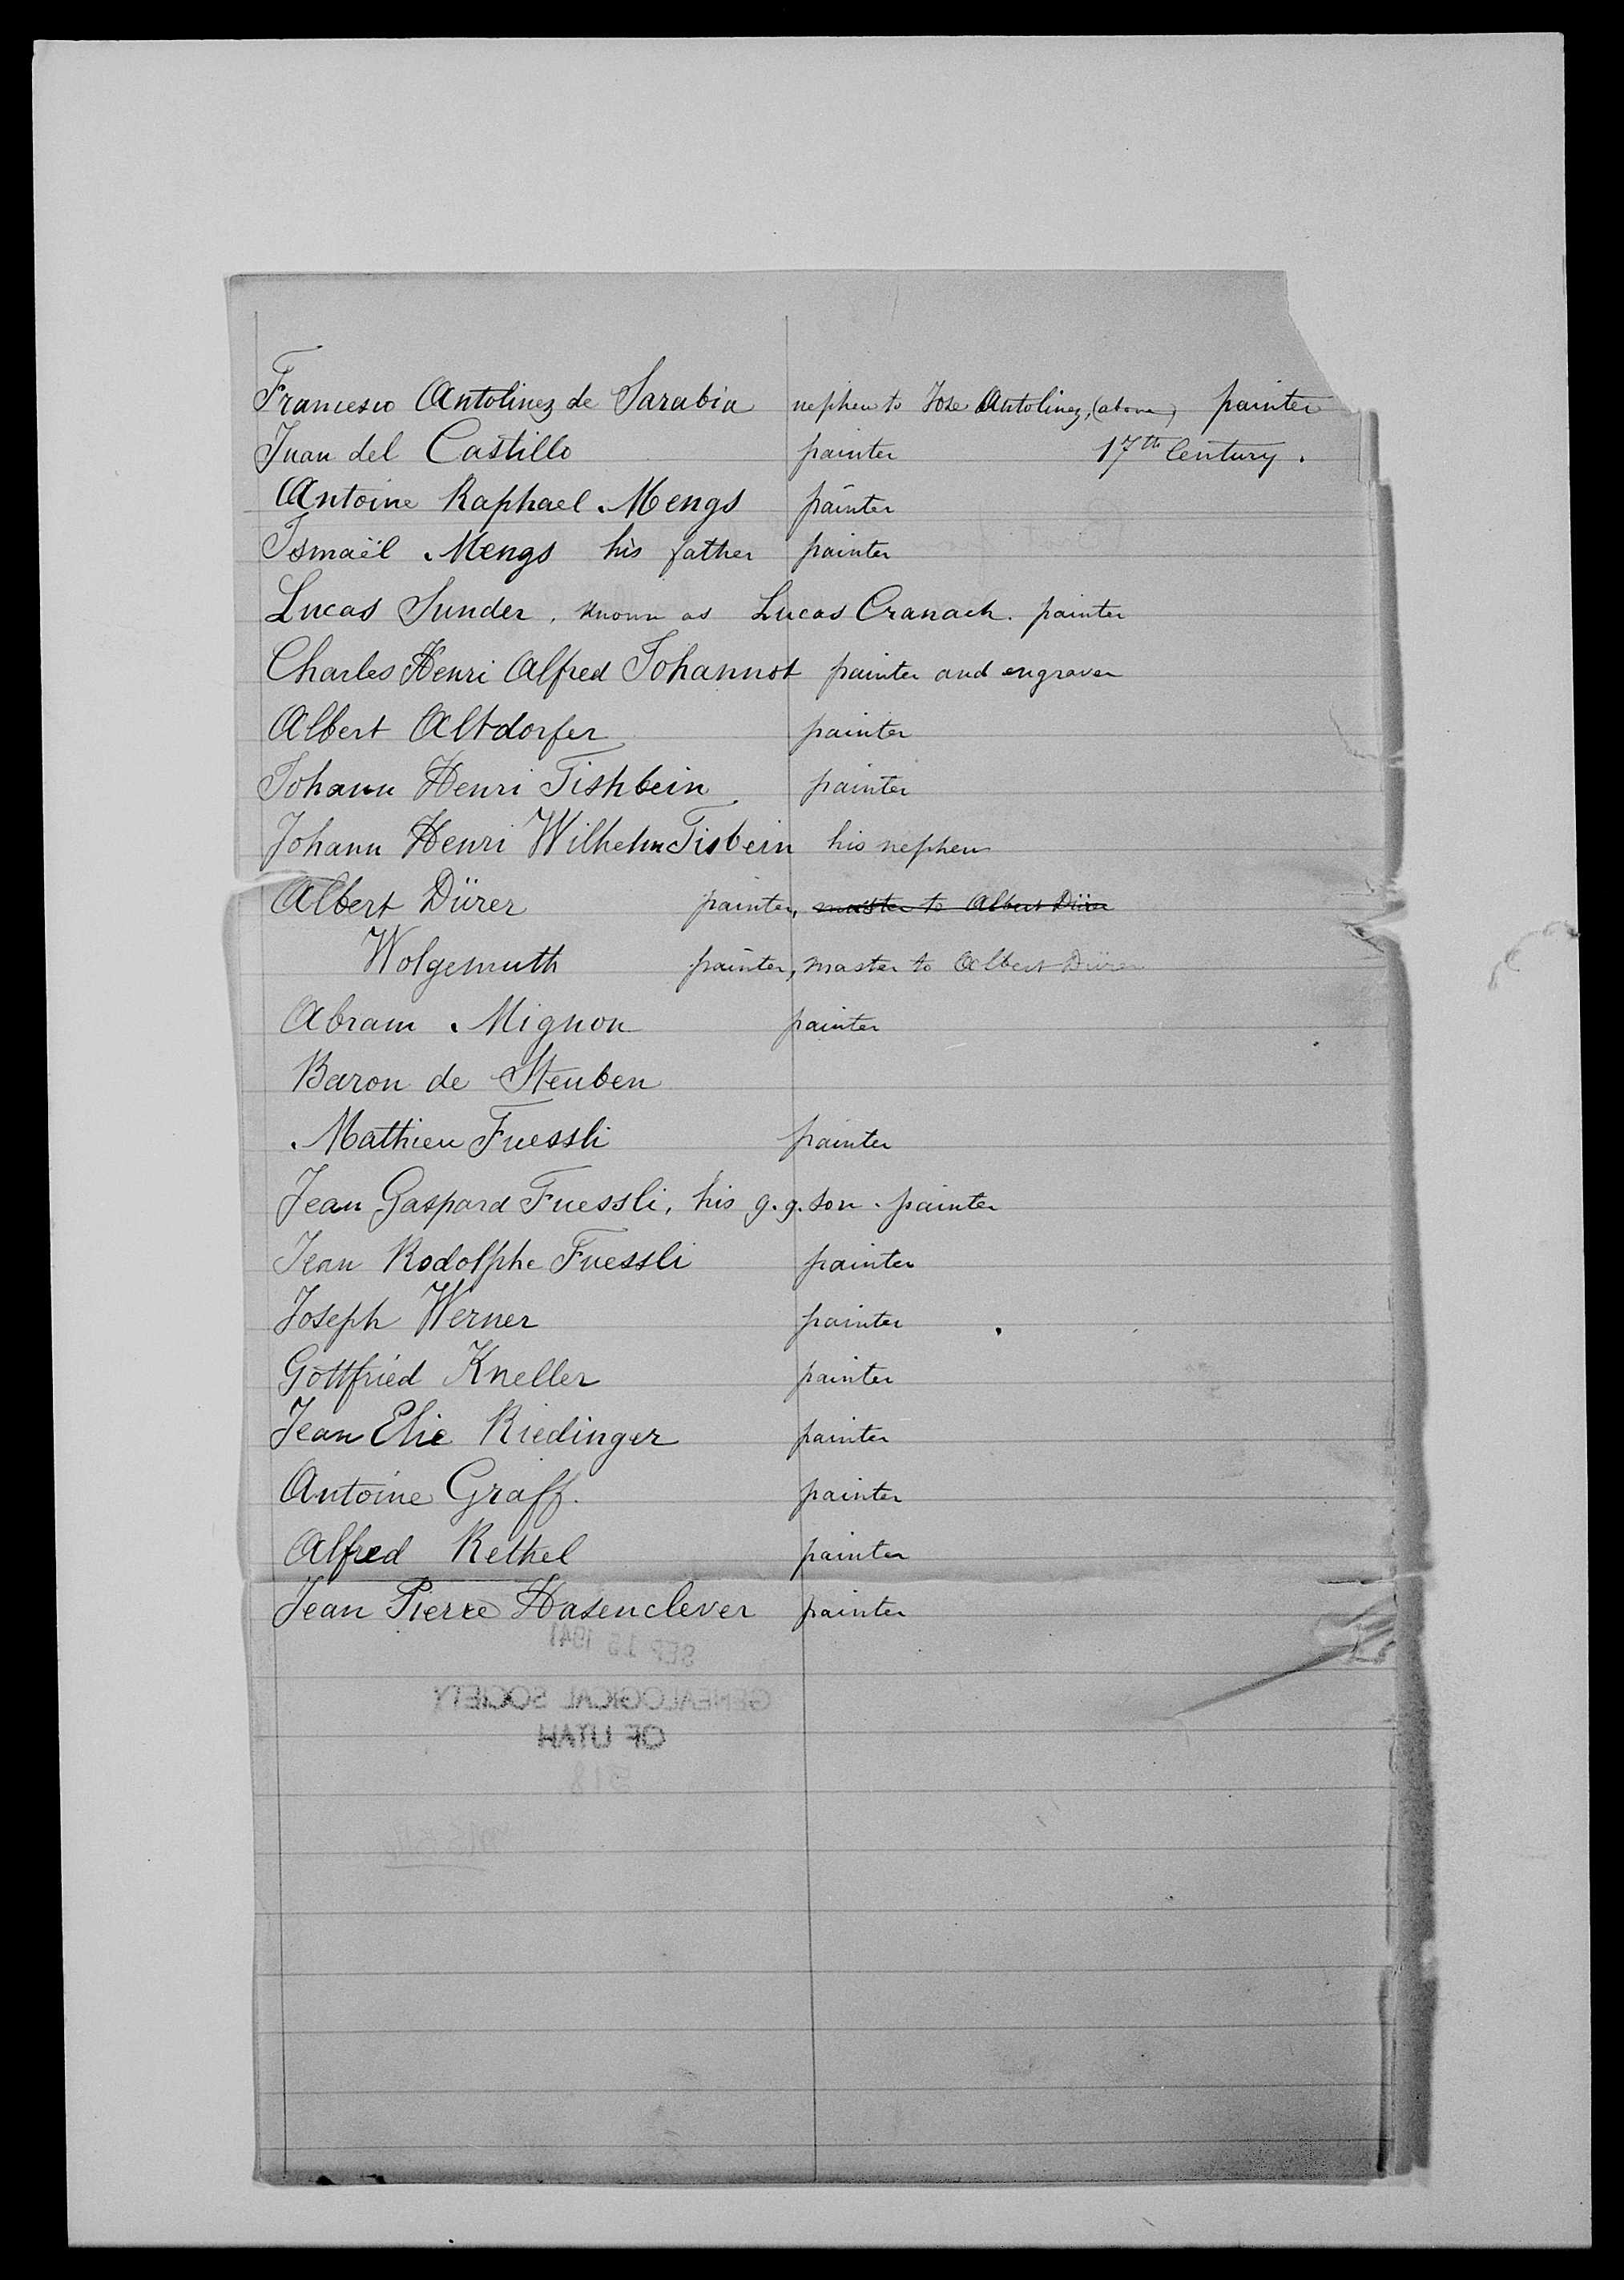 Francesco Antolinez de Sarabia nephew to Jose Antolinez, (above) painter
Juan del Castillo painter 17th Century.
Antoine Raphael Mengs painter
Ismaël Mengs his father painter
Lucas Sunder, known as Lucas Cranach. painter
Charles Henri Alfred Johannot painter and engraver
Albert Altdorfer painter
Johann Henri Tishbein painter
Johann Henri Wilhelm Tisbein his nephew
Albert Dürer painter, master to Albert Dürer
Wolgemuth painter, master to Albert Dürer
Abram Mignon painter
Baron de Steuben
Mathieu Fuessli painter
Jean Gaspard Fuessli, his g.g. son. painter
Jean Rodolphe Fuessli painter
Joseph Werner painter
Gottfried Kneller painter
Jean Elie Riedinger painter
Antoine Graff. painter
Alfred Rethel painter
Jean Pierre Hasenclever painter
SEP 1941
GENEALOGICAL SOCIETY
OF UTAH